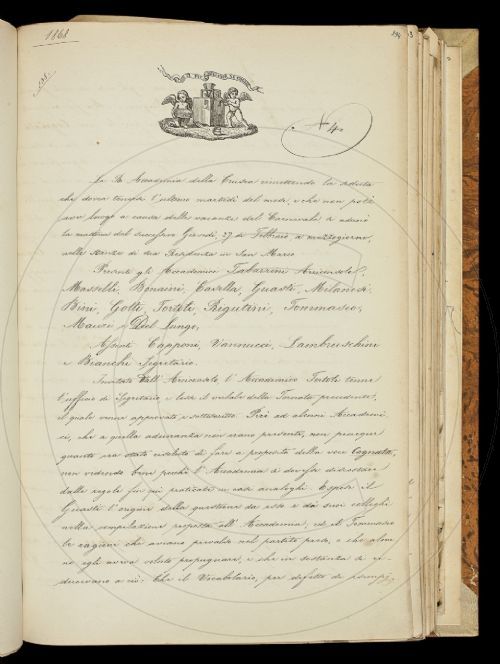 1868
194 3
198.
IL PIÙ BEL FIOR NE COGLIE
N. 4.
La R. Accademia della Crusca rimettendo la seduta
che dovea tenersi l'ultimo martedì del mese, e che non potè
aver luogo a causa delle vacanze del Carnevale, si adunò
la mattina del successivo Giovedì, 27 di Febbraio, a mezzogiorno,
nelle stanze di sua Residenza in San Marco.
Presenti gli Accademici Tabarrini Arciconsolo,
Masselli, Bonaini, Casella, Guasti, Milanesi,
Bini, Gotti, Tortoli, Rigutini, Tommaseo,
Mauri e Del Lungo;
Assenti Capponi, Vannucci, Lambruschini
e Bianchi Segretario.
Invitato dall'Arciconsolo, l'Accademico Tortoli tenne
l'ufficio di Segretario, e lesse il verbale della Tornata precedente,
il quale venne approvato e sottoscritto. Però ad alcuni Accademi-
ci, che a quella adunanza non erano presenti, non piacque
quanto era stato risoluto di fare a proposito della voce Cognata,
non vedendo bene perchè l'Accademia si dovesse discostare
dalle regole fin quì praticate in casi analoghi. Espose il
Guasti l'origine della quistione da esso e dai suoi colleghi
nella compilazione proposta all'Accademia, ed il Tommaseo
le ragioni che aveano prevalso nel partito preso, e che alme-
no egli aveva voluto propugnare, e che in sostanza si ri-
ducevano a ciò: Che il Vocabolario, per difetto di esempj,